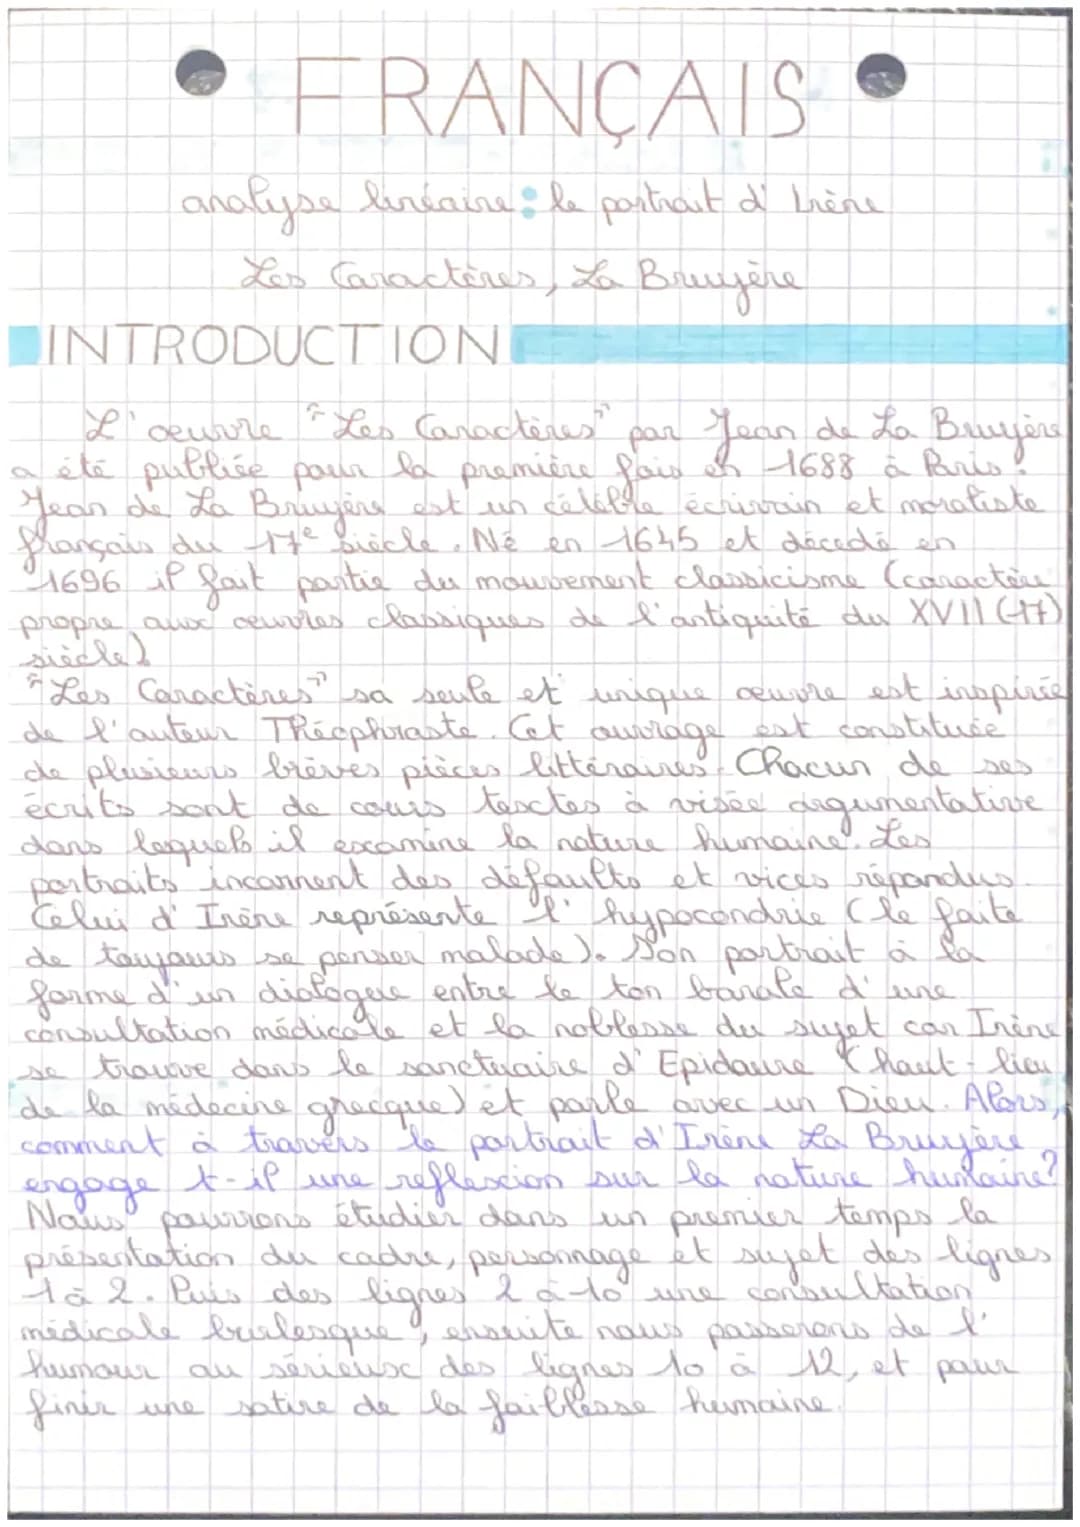 FRANÇAIS
analyse linéaire : le portrait d'Irène
Les Caractères, La Bruyère
INTRODUCTION
L'œuvre "Les Caractères" par Jean de La Bruyère
a été publiée pour la première fois en 1688 à Paris.
Jean de La Bruyère est un célèbre écrivain et moraliste
français du 17e siècle. Né en 1645 et décédé en
1696 il fait partie du mouvement classicisme (caractère
propre aux œuvres classiques de l'antiquité du XVII (17)
siècle)
"Les Caractères" sa seule et unique œuvre est inspirée
de l'auteur Théophraste. Cet ouvrage est constituée
de plusieurs brèves pièces littéraires. Chacun de ses
écrits sont de cours textes à visée argumentative
dans lequels il examine la nature humaine. Les
portraits incarnent des défaults et vices répandus.
Celui d'Irène représente l'hypocondrie (le faite
de toujours se penser malade). Son portrait à la
forme d'un dialogue entre le ton banale d'une
consultation médicale et la noblesse du sujet car Irène
se trouve dans le sanctuaire d'Epidaure (haut-lieu
de la médecine grecque) et parle avec un Dieu. Alors,
comment à travers le portrait d'Irène La Bruyère
engage t-il une reflexion sur la nature humaine?
Nous pourrons étudier dans un premier temps la
présentation du cadre, personnage et sujet des lignes
1 à 2. Puis des lignes 2 à 10 une consultation
médicale burlesque, ensuite nous passerons de l'
humour au sérieux des lignes 10 à 12, et pour
finir une satire de la faiblesse humaine.